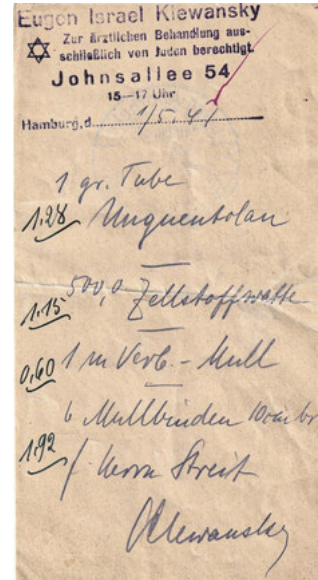 Eugen Israel Klewansky
Zur ärztlichen Behandlung aus-
schließlich von Juden berechtigt.
Johnsallee 54
15—17 Uhr
Hamburg,d. 1/5.41
1 gr. Tube
1,28 Unguentolan
1,15 500,0 Zellstoffwatte
0,60 1 m Verb. - Mull
6 Mullbinden 10cm br
1,92 f. Herrn Streit
Klewansky